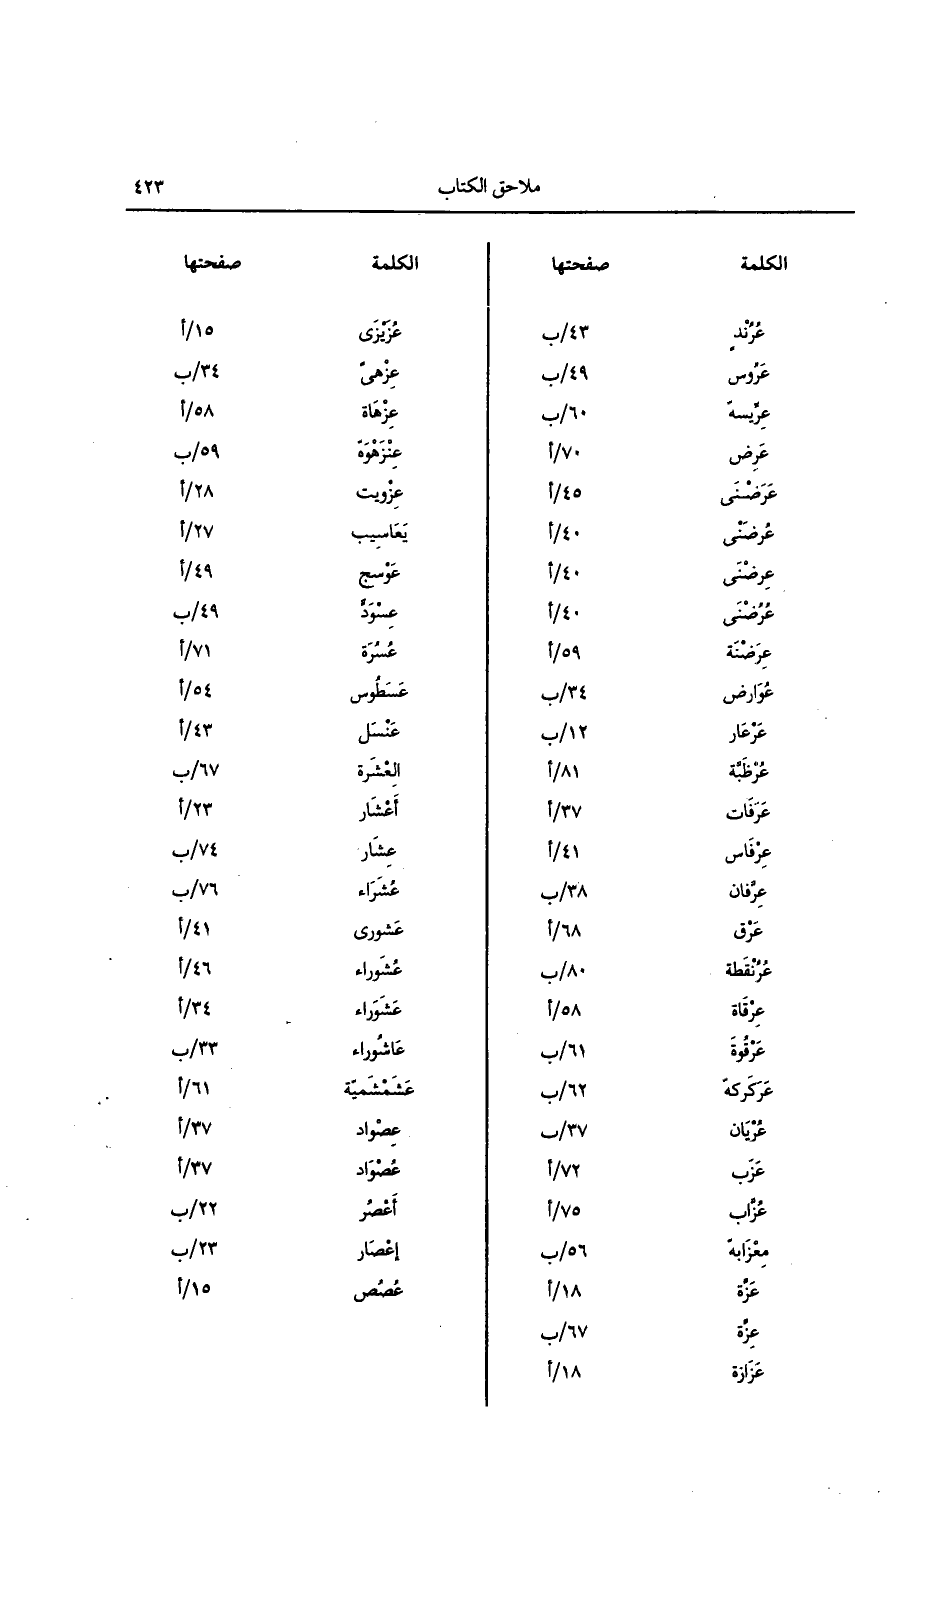 ملاحق الكتاب ٤٢٣
الكلمة صفحتها
عُرُنْدٍ ٤٣/ب
عَرُوس ٤٩/ب
عِرِّيسهّ ٦٠/ب
عَرِض ٧٠/أ
عَرَضْنَى ٤٥/أ
عُرضَنْى ٤٠/أ
عِرضْنَى ٤٠/أ
عُرُضْنَى ٤٠/أ
عِرَضْنَة ٥٩/أ
عُوَارض ٣٤/ب
عَرْعَار ١٢/ب
عُرْظَبَّة ٨١/أ
عَرَفَات ٣٧/أ
عِرْفَاس ٤١/أ
عِرِفَّان ٣٨/ب
عَرْق ٦٨/أ
عُرُنْقَطة ٨٠/ب
عِرْقَاة ٥٨/أ
عَرْقُوةَ ٦١/ب
عَرَكَركهّ ٦٢/ب
عُرْيَان ٣٧/ب
عَزَب ٧٢/أ
عُزَّاب ٧٥/أ
مِعْزَابهّ ٥٦/ب
عَزَّة ١٨/أ
عِزَّة ٦٧/ب
عَزَازة ١٨/أ
الكلمة صفحتها
عُزَيْزَى ١٥/أ
عِزْهىّ ٣٤/ب
عِزْهَاة ٥٨/أ
عِنْزَهْوَةّ ٥٩/ب
عِزْويت ٢٨/أ
يَعَاسِيب ٢٧/أ
عَوْسج ٤٩/أ
عِسْوَدّ ٤٩/ب
عُسُرَة ٧١/أ
عَسَطُوس ٥٤/أ
عَنْسَل ٤٣/أ
العْشَرة ٦٧/ب
أَعْشَار ٢٣/أ
عِشَار ٧٤/ب
عُشَرَاء ٧٦/ب
عَشورى ٤١/أ
عُشَوراء ٤٦/أ
عَشَوَراء ٣٤/أ
عَاشُوراء ٣٣/ب
عَشَمْشَميّة ٦١/أ
عِصْواد ٣٧/أ
عُصْوَاد ٣٧/أ
أَعْصُر ٢٢/ب
إعْصَار ٢٣/ب
عُصُص ١٥/أ